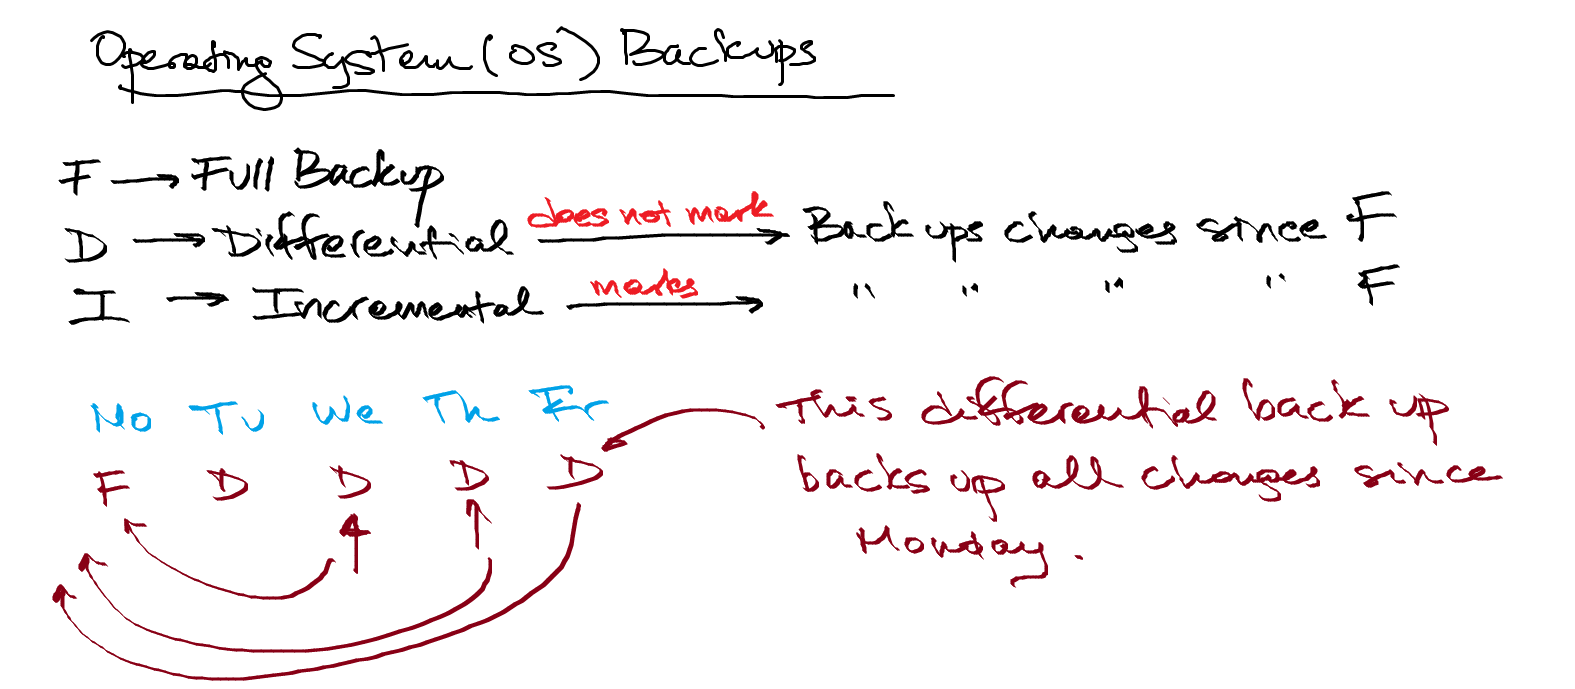 Operating System (OS) Backups
F → Full Backup
D → Differential does not mark → Backups changes since F
I → Incremental marks → " " " " F
Mo Tu We Th Fr
F D D D D
This differential back up
backs up all changes since
Monday.